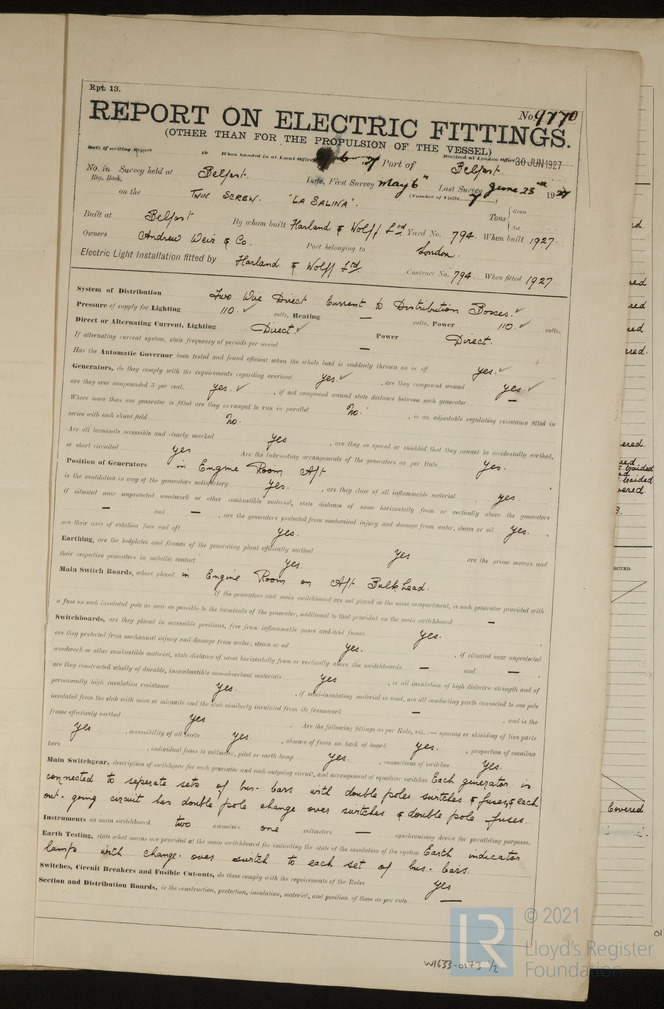 Rpt. 13.
No. 9770
REPORT ON ELECTRIC FITTINGS.
(OTHER THAN FOR THE PROPULSION OF THE VESSEL)
Date of writing Report 19 When handed in at Local Office Received at London Office 30 JUN 1927
Port of Belfast.
No. in Survey held at Belfast. Date, First Survey May 6th Last Survey June 23rd 1927
Reg. Book. (Number of Visits
on the TWIN SCREW. "LA SALINA". Tons { Gross
Net
Built at Belfast By whom built Harland & Wolff Ltd Yard No. 794. When built 1927.
Owners Andrew Weir & Co. Port belonging to London.
Electric Light Installation fitted by Harland & Wolff Ltd Contract No. 794. When fitted 1927.
System of Distribution Two Wire Direct Current to Distribution Boxes. ✓
Pressure of supply for Lighting 110. ✓ volts, Heating — volts, Power 110. ✓ volts.
Direct or Alternating Current, Lighting Direct. ✓ Power Direct.
If alternating current system, state frequency of periods per second —
Has the Automatic Governor been tested and found efficient when the whole load is suddenly thrown on or off yes. ✓
Generators, do they comply with the requirements regarding overload yes ✓ , are they compound wound yes ✓
are they over compounded 5 per cent. yes. ✓ , if not compound wound state distance between each generator —
Where more than one generator is fitted are they arranged to run in parallel No. , is an adjustable regulating resistance fitted in
series with each shunt field No.
Are all terminals accessible and clearly marked yes , are they so spaced or shielded that they cannot be accidentally earthed,
or short circuited yes Are the lubricating arrangements of the generators as per Rule yes.
Position of Generators in Engine Room Aft
is the ventilation in way of the generators satisfactory yes. , are they clear of all inflammable material yes.
if situated near unprotected woodwork or other combustible material, state distance of same horizontally from or vertically above the generators
— and — , are the generators protected from mechanical injury and damage from water, steam or oil yes. ,
are their axes of rotation fore and aft yes.
Earthing, are the bedplates and frames of the generating plant efficiently earthed yes are the prime movers and
their respective generators in metallic contact yes.
Main Switch Boards, where placed in Engine Room on Aft Bulkhead.
If the generators and main switchboard are not placed in the same compartment, is each generator provided with
a fuse on each insulated pole as near as possible to the terminals of the generator, additional to that provided on the main switchboard —
Switchboards, are they placed in accessible positions, free from inflammable gases and acid fumes yes.
are they protected from mechanical injury and damage from water, steam or oil yes. , if situated near unprotected
woodwork or other combustible material, state distance of same horizontally from or vertically above the switchboards — and —
are they constructed wholly of durable, incombustible non-absorbent materials yes , is all insulation of high dielectric strength and of
permanently high insulation resistance yes. , if semi-insulating material is used, are all conducting parts connected to one pole
insulated from the slab with mica or micanite and the slab similarly insulated from its framework — , and is the
frame effectively earthed yes Are the following fittings as per Rule, viz.:— spacing or shielding of live parts
yes , accessibility of all parts yes , absence of fuses on back of board yes. , proportion of omnibus
bars , individual fuses to voltmeter, pilot or earth lamp yes. , connections of switches yes.
Main Switchgear, description of switchgear for each generator and each outgoing circuit, and arrangement of equaliser switches Each generator is
connected to seperate sets of bus-bars with double poles switches & fuses, & each
out-going circuit has double pole change over switches & double pole fuses.
Instruments on main switchboard two ammeters one voltmeters — synchronising device for paralleling purposes.
Earth Testing, state what means are provided at the main switchboard for indicating the state of the insulation of the system Earth indicator
lamp with change-over switch to each set of bus-bars.
Switches, Circuit Breakers and Fusible Cut-outs, do these comply with the requirements of the Rules yes
Section and Distribution Boards, is the construction, protection, insulation, material, and position of these as per rule —
W1633-0173 1/2
LR
© 2021
Lloyd's Register
Foundation
Covered